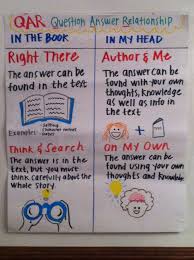 QAR Question Answer Relationship
IN THE BOOK
Right There
The answer can be
found in the text
Think & Search
The answer is in the
text, but you must
think carefully about the
whole story
IN MY HEAD
Author & Me
The answer can be
found with your own
thoughts, knowledge
as well as info in
the text
On My Own
The answer can be
found using your own
thoughts and knowledge